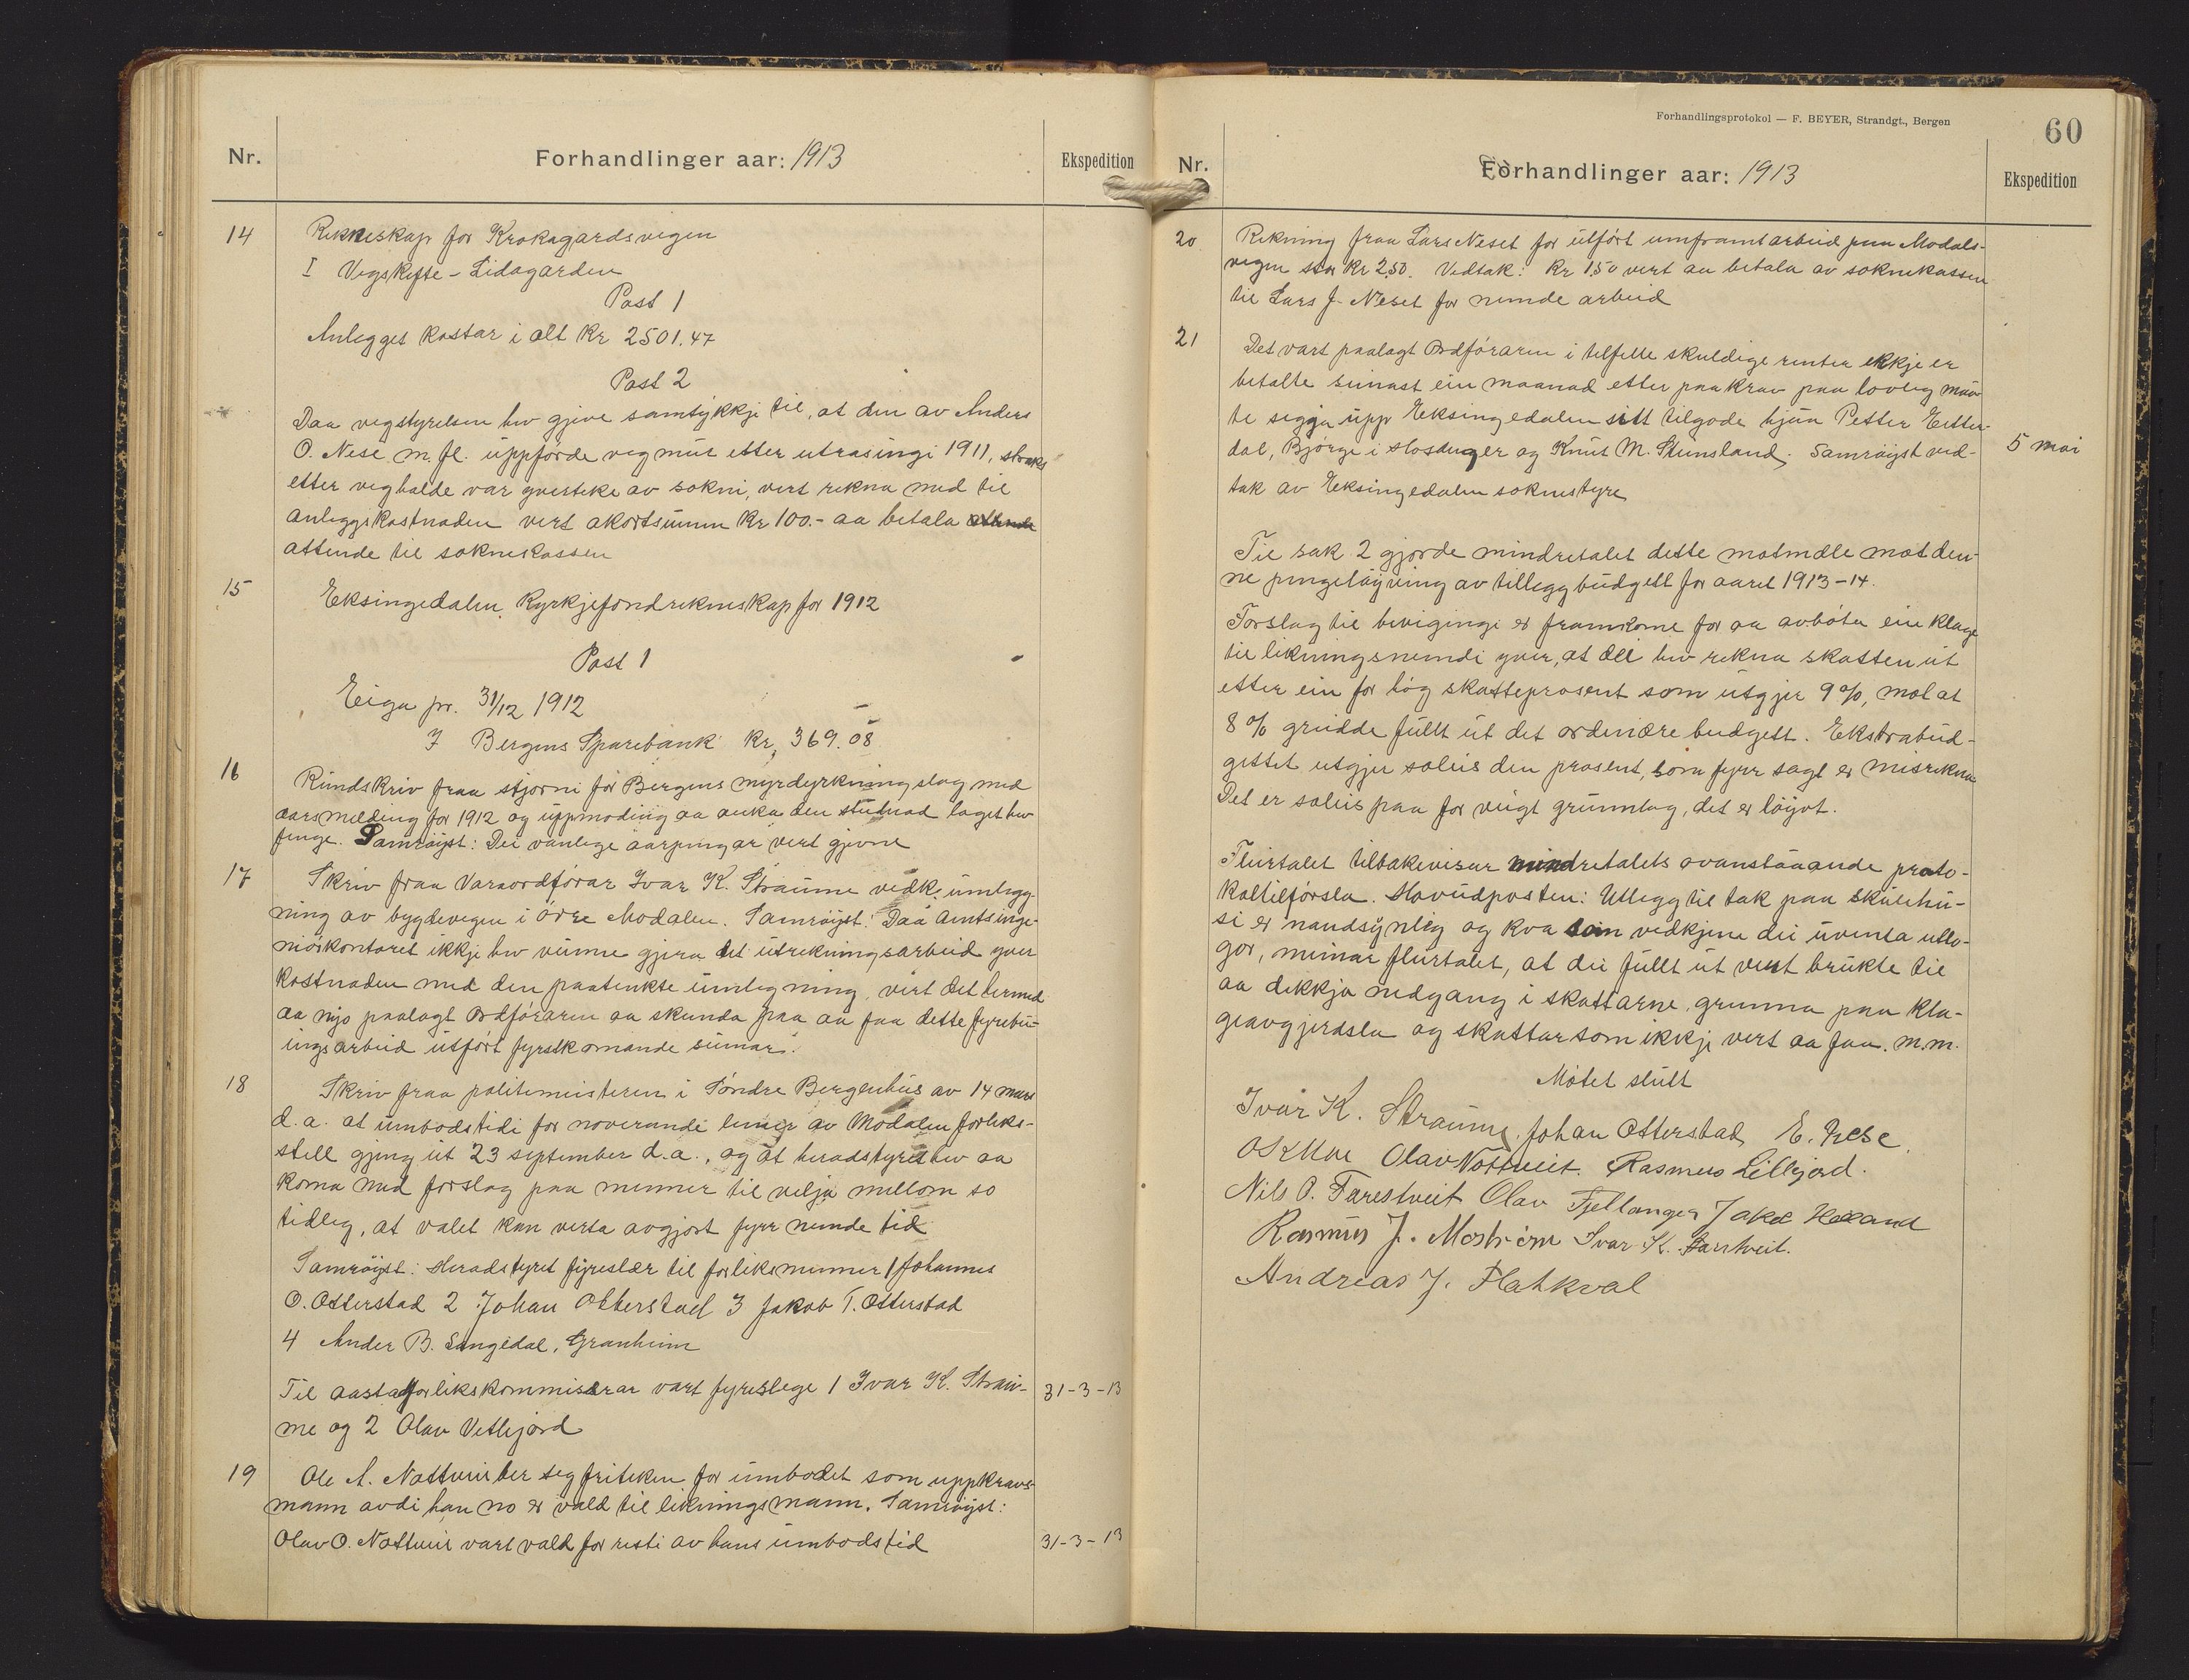 Nr.
Forhandlinger aar: 1913
Ekspedition
14
Rekneskap for Krokagardsvegen
I Vegskifte - Lidagarden
Post 1
Anlegget kostar i alt Kr 2501.47
Post 2
Daa vegstyrelsen hev gjeve samtykkje til, at den av Anders
O. Nese m. fl. uppførde vegmur etter utrasingi 1911, straks
etter veghalde var yverteke av sokni, vert rekna med til
anleggskostnaden vert akortsummen Kr 100.- aa betala
attende til soknekassen
15
Eksingedalen Kyrkjefondrekneskap for 1912
Post 1
Eiga pr. 31/12 1912
I Bergens Sparebank Kr, 369.08
16
Rundskriv fraa stjorni for Bergens myrdyrkningslag med
aarsmelding for 1912 og uppmoding aa auka den studnad laget hev
fenge. Samrøyst: Dei vanlege aarpengar vert gjevne
17
Skriv fraa Varaordførar Ivar K. Straume vedk. umlegg-
ning av bygdevegen i øvre Modalen. Samrøyst: Daa Amtsinge-
niørkontoret ikkje hev vunne gjera det utrekningsarbeid yver
kostnaden med den paatenkte umlegning, vert det hermed
aa nyo paalagt Ordføraren aa skunda paa aa faa dette fyrebu-
ingsarbeid utført fyrstkomande sumar.
18
Skriv fraa politemeisteren i Søndre Bergenhus av 14 mars
d.a. at umbodstidi for noverande lemer av Modalen forliks-
stell gjeng ut 23 september d.a., og at heradstyret hev aa
koma med forslag paa menner til velja millom so
tidleg, at valet kan verta avgjort fyrr nemde tid
Samrøyst: Heradstyret fyreslær til forliksmenner 1 Johannes
O. Otterstad 2 Johan Otterstad 3 Jakob T. Otterstad
4 Ander B. Sengedal, Granheim
Til aastadforlikskommisærar vart fyreslege 1 Ivar K. Strau-
31-3-13
me og 2 Olav Vetlejord
19
Ole A. Nottveit ber seg friteken for umbodet som uppkravs-
mann avdi han no er vald til likningsmann. Samrøyst:
Olav O. Nottveit vart vald for resti av hans umbodstid
31-3-13
Forhandlingsprotokol — F. BEYER, Strandgt., Bergen
60
Nr.
Forhandlinger aar: 1913
Ekspedition
20
Rekning fraa Lars Neset for utført umframtarbeid paa Modals-
vegen stor Kr 2.50. Vedtak: Kr 1.50 vert aa betala av soknekassen
til Lars J. Neset for nemde arbeid
21
Det vart paalagt Ordføraren i tilfelle skuldige renter ikkje er
betalte seinast ein maanad etter paakrav paa lovleg maa-
te segja upp Eksingedalen sitt tilgode hjaa Petter Eetter-
dal, Bjørge i Hosanger og Knut M. Stunsland. Samrøyst ved-
5 mai
tak av Eksingedalen soknestyre
Til sak 2 gjorde mindretalet dette motmæle mot den-
ne pengeløyving av tilleggbudgett for aaret 1913-14.
Forslag til bevigingi er framkome for aa avbøta ein klage
til likningsnemdi yver, at dei hev rekna skatten ut
etter ein for høg skatteprosent som utgjer 9%, mot at
8% greidde fullt ut det ordinære budgett. Ekstrabud-
gettet utgjer soleis den prosent, som fyrr sagt er misrekna
Det er soleis paa for veigt grunnlag, det er løyvt.
Fleirtalet tilbakeviser mindretalets ovanstaaande proto-
koltilførsla. Hovudposten: Utlegg til tak paa skulehu-
si er naudsynleg og kva som vedkjem dei uventa utlo-
gor, meinar fleirtalet, at dei fullt ut vert brukte til
aa dekkja nedgang i skattarne, grunna paa kla-
geavgjerdsla og skattar som ikkje vert aa faa. m.m.
Møtet slutt
Ivar K. Straume. Johan Otterstad E. Nese.
Olav Nottveit. Rasmus Lillejord.
Nils O. Farestveit Olav Fjellanger Jakob Helland
Rasmus J. Mostrøm Ivar K. Farestveit.
Andreas J. Flatkval